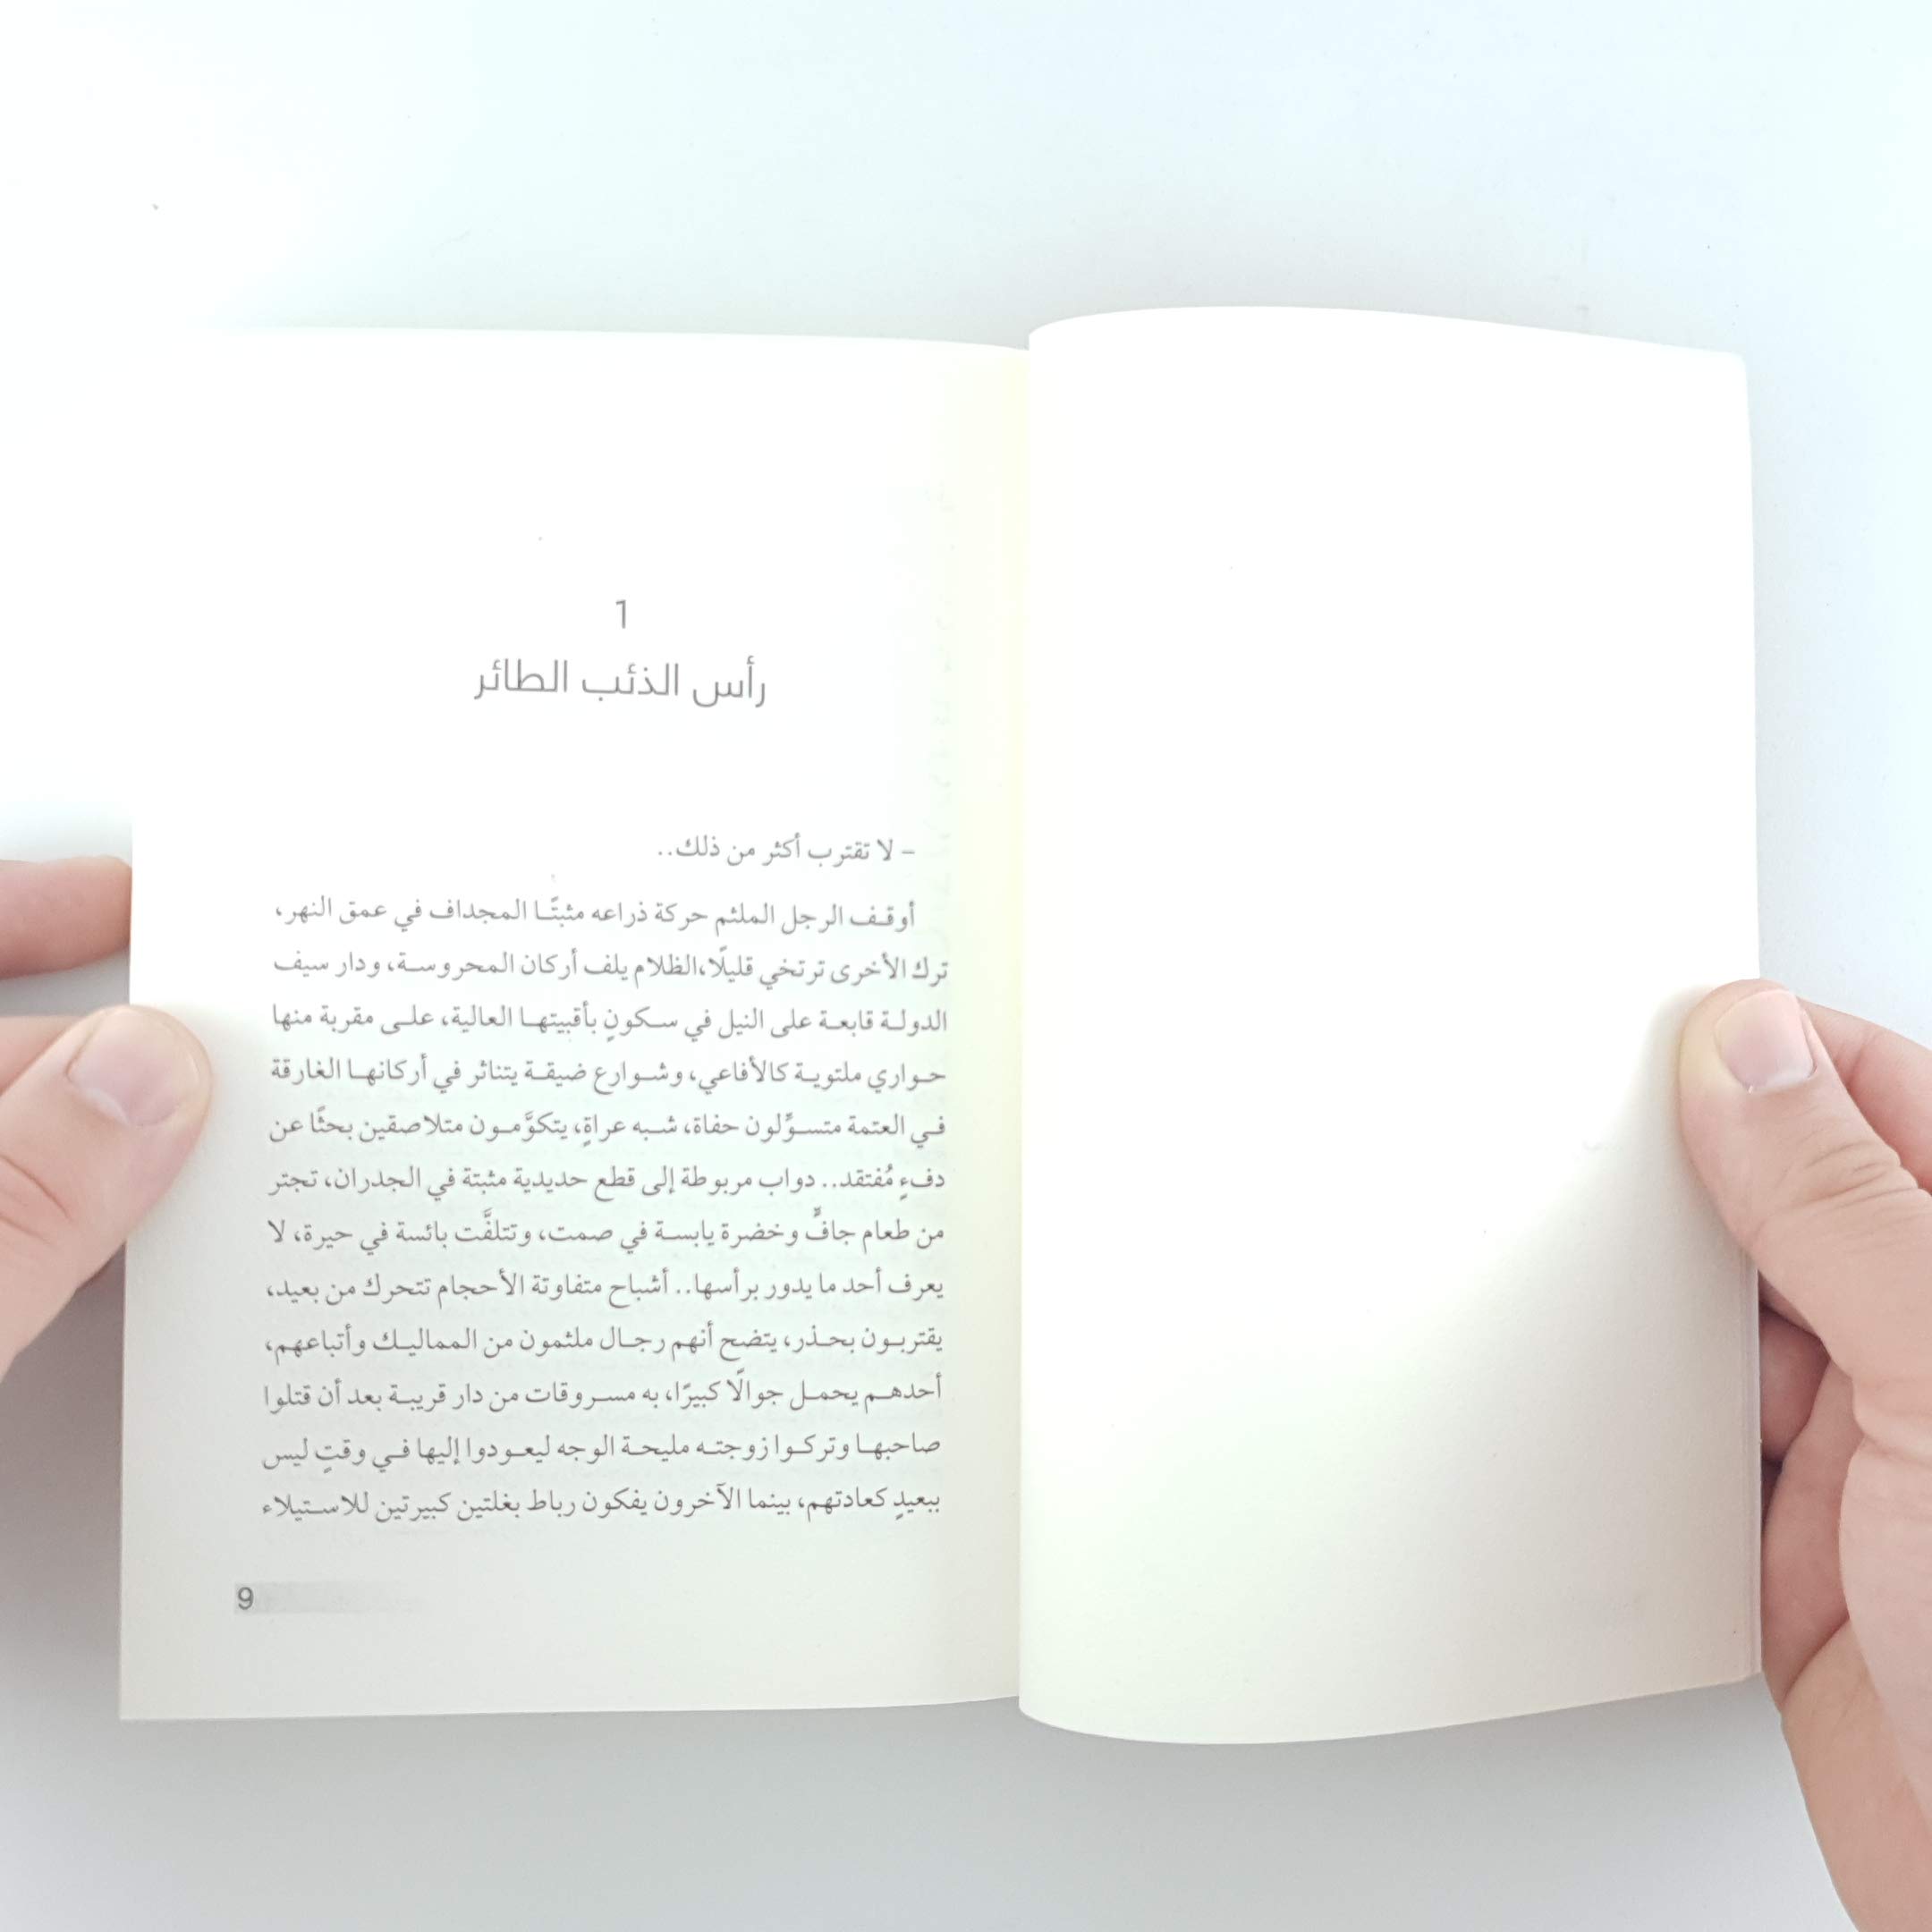 1
رأس الذئب الطائر
– لا تقترب أكثر من ذلك..
أوقف الرجل الملثم حركة ذراعه مثبتًا المجداف في عمق النهر،
ترك الأخرى ترتخي قليلًا، الظلام يلف أركان المحروسة، ودار سيف
الدولة قابعة على النيل في سكونٍ بأقبيتها العالية، على مقربة منها
حواري ملتوية كالأفاعي، وشوارع ضيقة يتناثر في أركانها الغارقة
في العتمة متسوِّلون حفاة، شبه عراةٍ، يتكوَّمون متلاصقين بحثًا عن
دفءٍ مُفتقد.. دواب مربوطة إلى قطع حديدية مثبتة في الجدران، تجتر
من طعام جافٍّ وخضرة يابسة في صمت، وتتلفَّت بائسة في حيرة، لا
يعرف أحد ما يدور برأسها.. أشباح متفاوتة الأحجام تتحرك من بعيد،
يقتربون بحذر، يتضح أنهم رجال ملثمون من المماليك وأتباعهم،
أحدهم يحمل جوالًا كبيرًا، به مسروقات من دار قريبة بعد أن قتلوا
صاحبها وتركوا زوجته مليحة الوجه ليعودوا إليها في وقتٍ ليس
ببعيدٍ كعادتهم، بينما الآخرون يفكون رباط بغلتين كبيرتين للاستيلاء
9